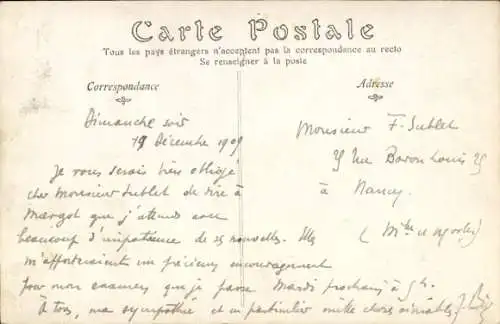 Carte Postale
Tous les pays étrangers n'acceptent pas la correspondance au recto
Se renseigner à la poste
Correspondance
Adresse
Dimanche soir
19 Décembre 1909
Je vous serais bien obligé
cher Monsieur Sublet de dire à
Margot que j'attends avec
beaucoup d'impatience de ses nouvelles. Elles
m'apporteraient un précieux encouragement
pour mon examen que je passe Mardi prochain à 5h.
A tous, ma sympathie et en particulier mille choses aimables!
Monsieur F. Sublet
25 rue Baron Louis 25
à Nancy
(Mthe et Moselle)